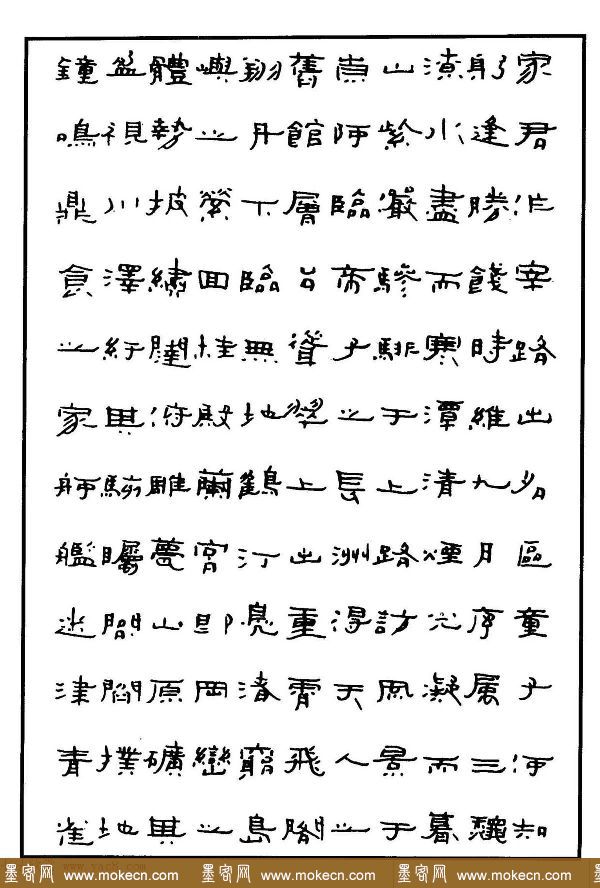 家君作宰路出名區童子何知
躬逢勝餞時維九月序屬三龝
潦水盡而寒潭清煙光凝而暮
山紫嚴驂騑于上路訪風景于
崇阿臨帝子之長洲得天人之
舊館層台聳翠上出重霄飛閣
翔丹下臨無地鶴汀鳧渚窮島
嶼之縈回桂殿蘭宮即岡巒之
體勢披繡闥俯雕甍山原礦其
盈視川澤紆其駭矚閭閻撲地
鐘鳴鼎食之家舸艦迷津青雀
墨客网 www.mokecn.com 墨客网 www.mokecn.com 墨客网 www.mokecn.com